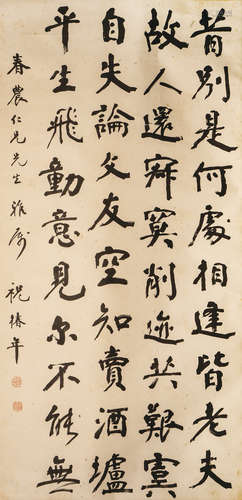 昔別是何處相逢皆老夫
故人還寂寞削迹共艱虞
自失論文友空知賣酒壚
平生飛動意見爾不能無
春農仁兄先生雅屬 祝椿年